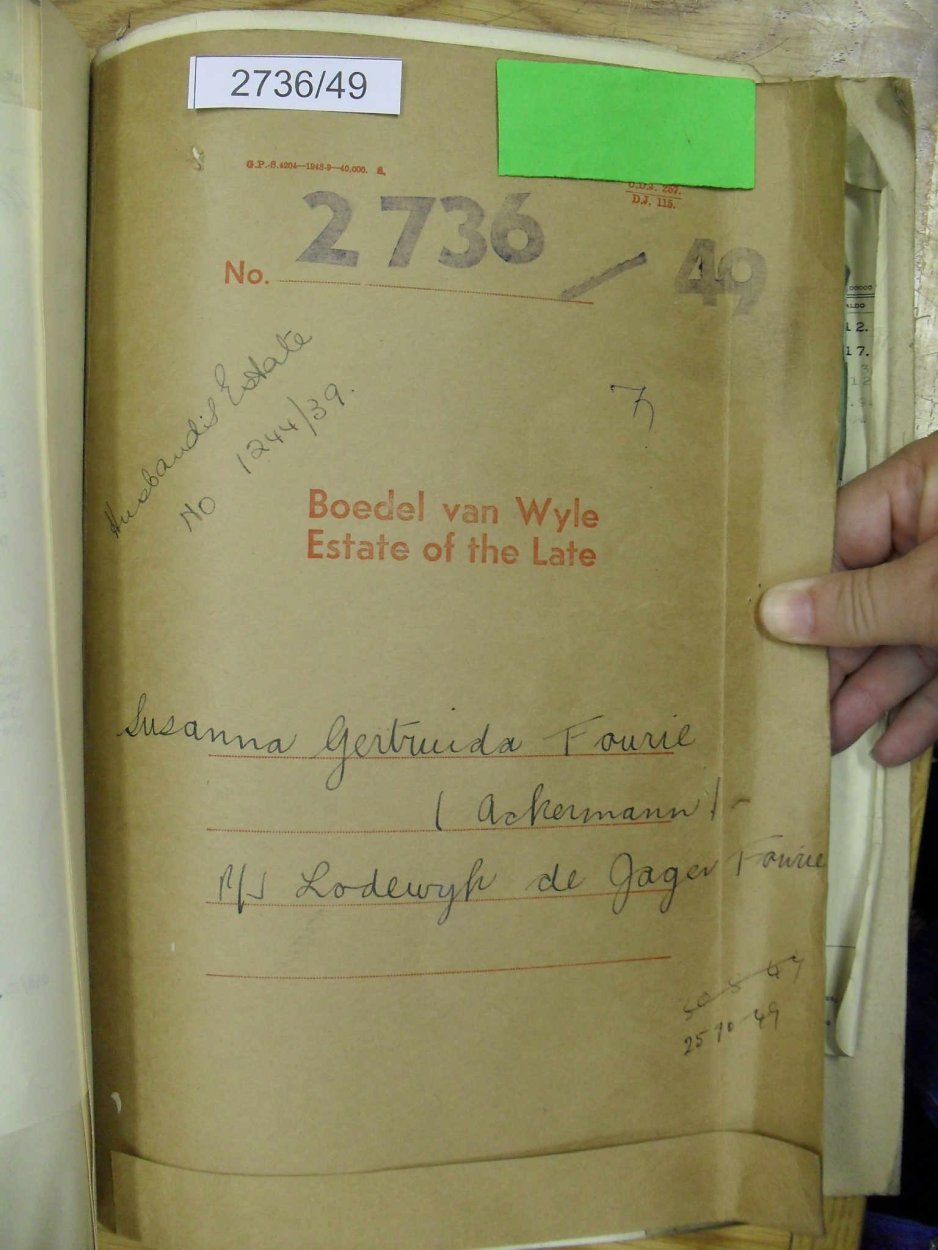 2736/49
G.P.-S.4204—1948-9—40,000. S.
D.J. 115.
No. 2736 / 49
Husband's Estate
No 1244/39.
Boedel van Wyle
Estate of the Late
Susanna Gertruida Fourie
(Ackermann)
P/S Lodewyk de Jager Fourie
25 10 49
12.
17.